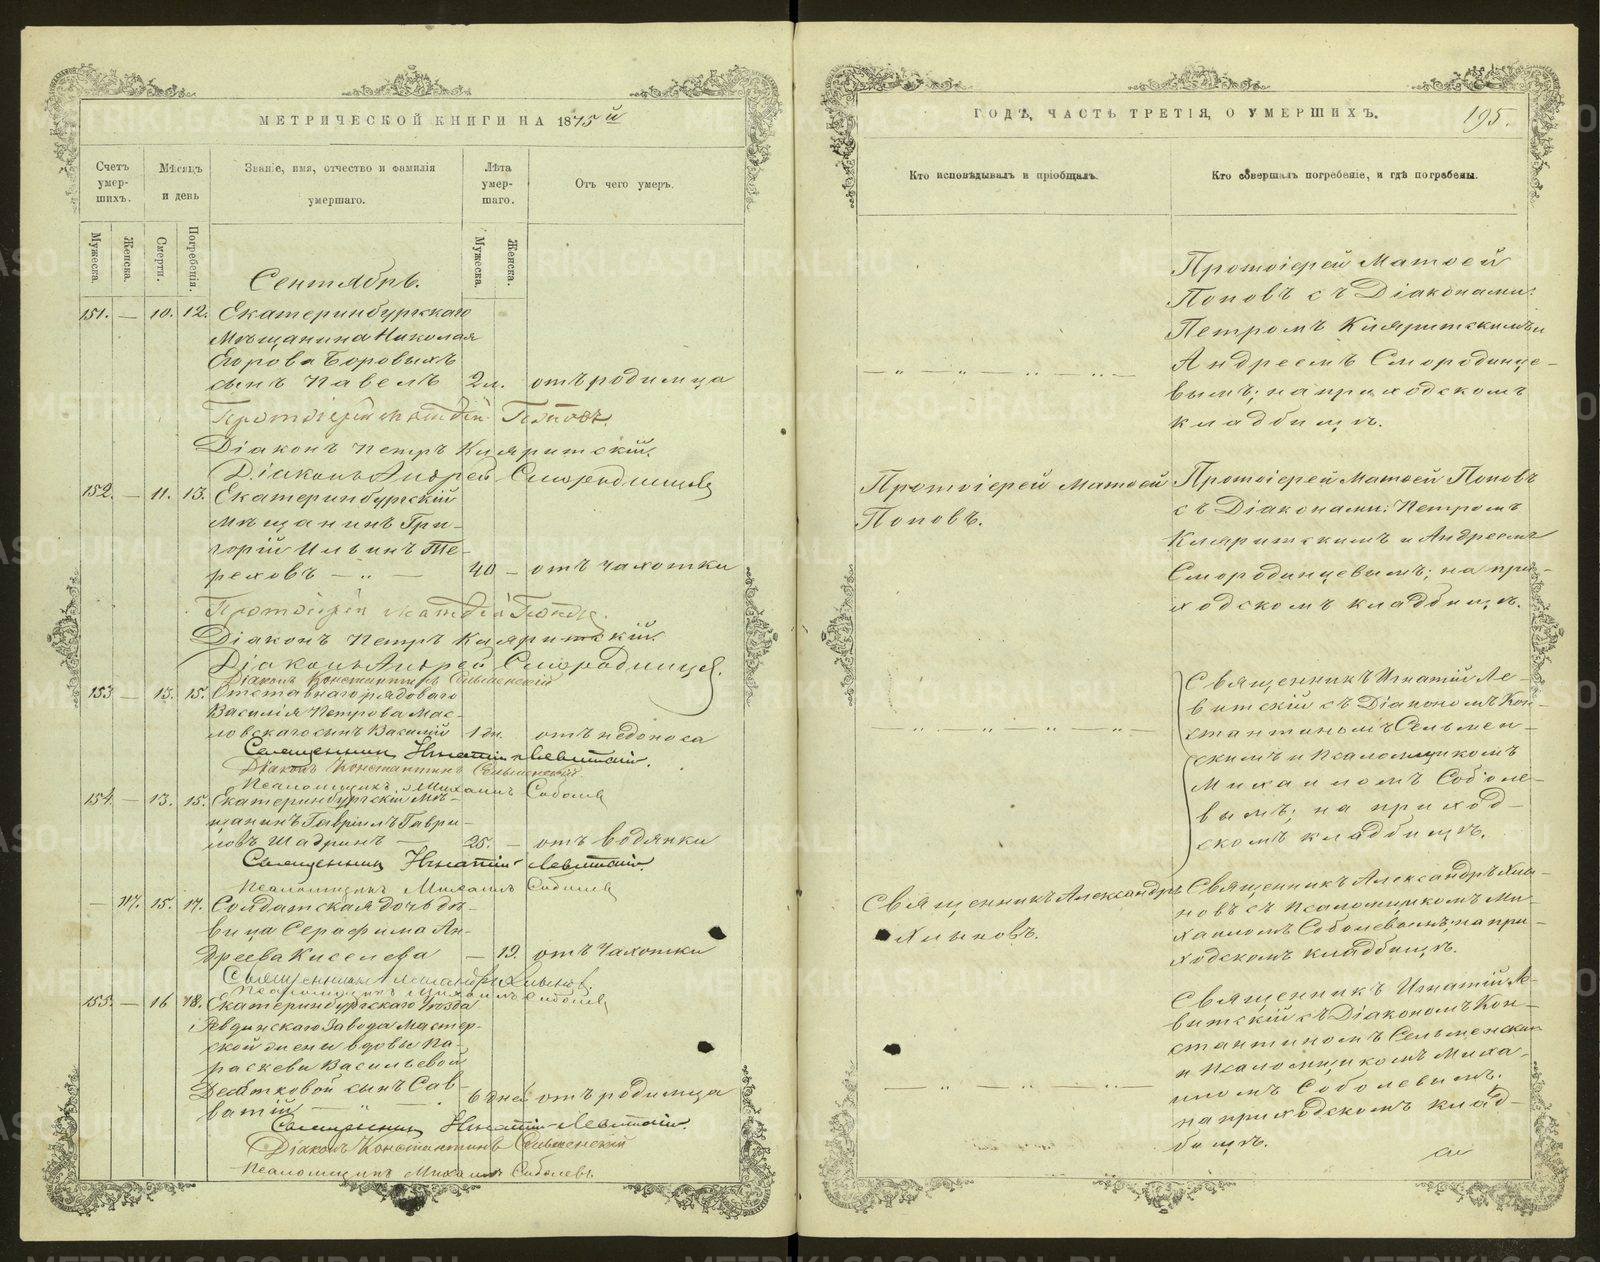 МЕТРИЧЕСКОЙ КНИГИ НА 1875й
Счетъ умер-шихъ.
Мѣсяцъ и день
Званіе, имя, отчество и фамилія умершаго.
Лѣта умер-шаго.
Отъ чего умеръ.
Мужеска.
Женска.
Смерти.
Погребенія.
Мужеска.
Женска.
Сентябрь.
151. — 10. 12. Екатеринбургскаго
Мѣщанина Николая
Егорова Боровыхъ
сынъ Павелъ 2 л. отъ родимца
Протоіерей Матѳій Поповъ
Діаконъ Петръ Кляритскій.
Діаконъ Андрей Смородинцевъ
152. — 11. 13. Екатеринбургскій
мѣщанинъ Гри-
горій Ильинъ Те-
реховъ — „ — 40 — отъ чахотки
Протоіерей Матѳій Поповъ
Діаконъ Петръ Кляритскій.
Діаконъ Андрей Смородинцев.
Діаконъ Константинъ Сельменскій
153 — 13. 15. Отставнаго рядоваго
Василія Петрова Мас-
ловскаго сынъ Василій 1 дн. отъ недоноса
Священникъ Игнатій Левитскій.
Діаконъ Константинъ Сельменскій
Псаломщикъ Михаилъ Соболев
154. — 13. 15. Екатеринбургскій мѣ-
щанинъ Гавріилъ Гаври-
ловъ Шадринъ — 25. — отъ водянки
Священникъ Игнатій Левитскій.
Псаломщикъ Михаилъ Соболев
— 117. 15. 17. Солдатская дочь дѣ-
вица Серафима Ан-
дреева Киселева — 19. отъ чахотки
Священникъ Александръ Хлыновъ.
Псаломщикъ Михаилъ Соболев
155. — 16 18. Екатеринбургскаго уѣзда
Ревдинскаго Завода Мастер-
ской жены вдовы Па-
раскевы Васильевой
Десятковой сынъ Сав-
ватій — „ — 6 дней отъ родимца
Священникъ Игнатій Левитскій.
Діаконъ Константинъ Сельменскій
Псаломщикъ Михаилъ Соболевъ.
ГОДѢ, ЧАСТЬ ТРЕТІЯ, О УМЕРШИХЪ.
195.
Кто исповѣдывалъ и пріобщалъ.
Кто совершалъ погребеніе, и гдѣ погребены.
Протоіерей Матѳей
Поповъ съ Діаконами:
Петромъ Кляритскимъ и
Андреемъ Смородинце-
вымъ; на приходскомъ
кладбищѣ.
— „ — „ — „ —
Протоіерей Матѳей
Поповъ.
Протоіерей Матѳей Поповъ
съ Діаконами: Петромъ
Кляритскимъ и Андреемъ
Смородинцевымъ; на при-
ходскомъ кладбищѣ.
Священникъ Игнатій Ле-
витскій съ Діакономъ Кон-
стантиномъ Сельмен-
скимъ и Псаломщикомъ
Михаиломъ Соболе-
вымъ; на приход-
скомъ кладбищѣ.
— „ — „ — „ —
Священникъ Александръ
Хлыновъ.
Священникъ Александръ Хлы-
новъ съ Псаломщикомъ Ми-
хаиломъ Соболевымъ; на при-
ходскомъ кладбищѣ.
Священникъ Игнатій Ле-
витскій съ Діакономъ Кон-
стантиномъ Сельменским
и Псаломщикомъ Миха-
иломъ Соболевымъ.
на приходскомъ клад-
бищѣ.
— „ — „ — „ —
METRIKI.GASO-URAL.RU